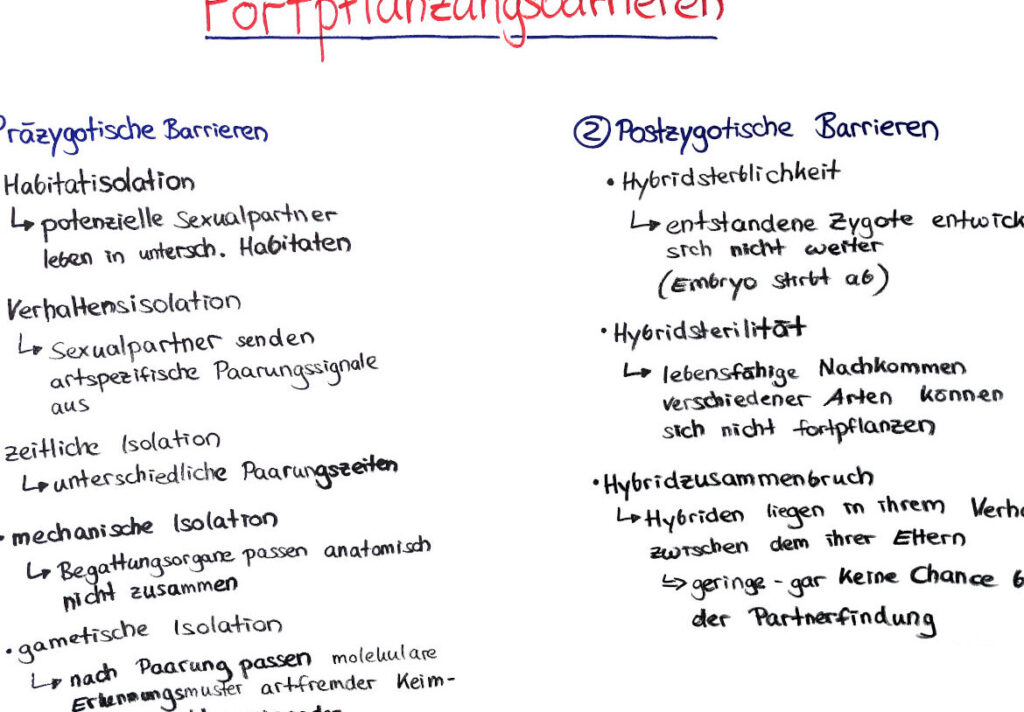 Fortpflanzungsbarrieren
Präzygotische Barrieren
Habitatisolation
↳ potenzielle Sexualpartner
leben in untersch. Habitaten
Verhaltensisolation
↳ Sexualpartner senden
artspezifische Paarungssignale
aus
zeitliche Isolation
↳ unterschiedliche Paarungszeiten
• mechanische Isolation
↳ Begattungsorgane passen anatomisch
nicht zusammen
• gametische Isolation
↳ nach Paarung passen molekulare
Erkennungsmuster artfremder Keim-
② Postzygotische Barrieren
• Hybridsterblichkeit
↳ entstandene Zygote entwick
sich nicht weiter
(Embryo stirbt ab)
• Hybridsterilität
↳ lebensfähige Nachkommen
verschiedener Arten können
sich nicht fortpflanzen
• Hybridzusammenbruch
↳ Hybriden liegen in ihrem Verha
zwischen dem ihrer Eltern
↳ geringe - gar keine Chance b
der Partnerfindung